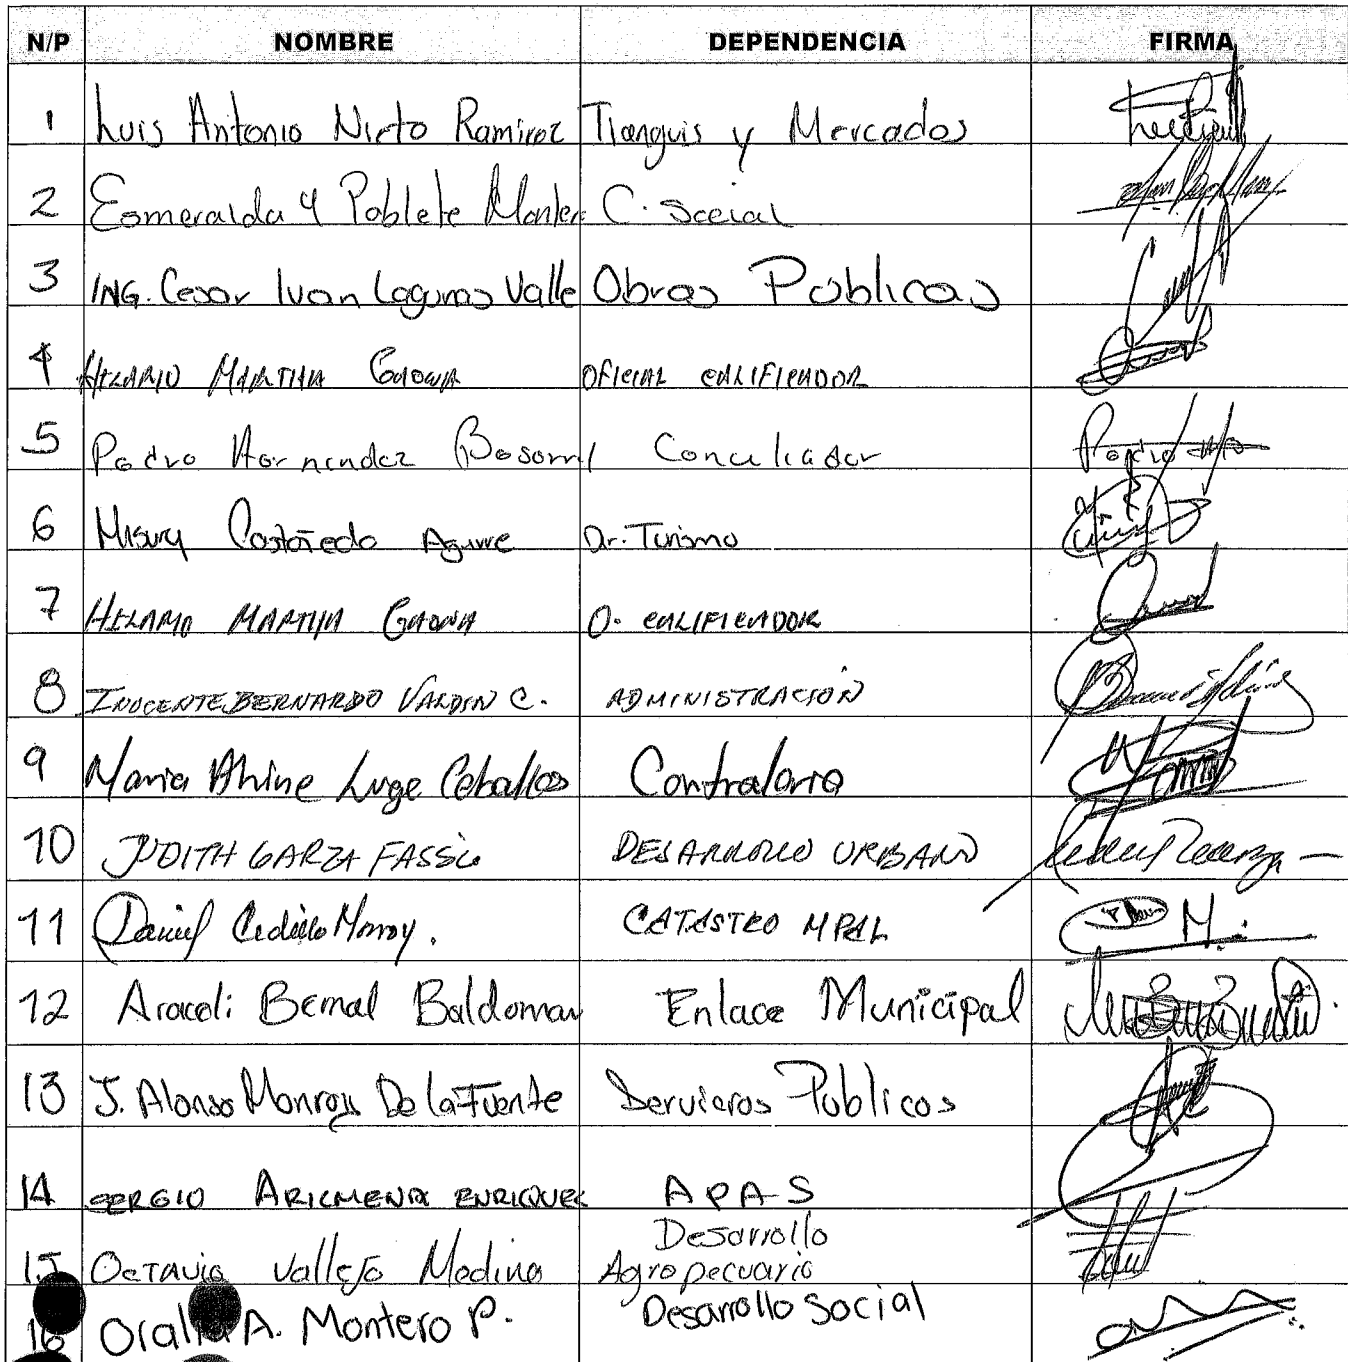 N/P NOMBRE DEPENDENCIA FIRMA
1 Luis Antonio Nieto Ramirez Tianguis y Mercados
2 Esmeralda Y Poblete Montero C. Social
3 ING. Cesar Ivan Lagunas Valle Obras Públicas
4 HILARIO MARTIIA GAONA OFICIAL CALIFICADOR
5 Pedro Hernandez Conciliador
6 Castañeda Aguirre Dr. Turismo
7 HILARIO GAONA O. CALIFICADOR
8 INOCENTE BERNARDO VALDIN C. ADMINISTRACIÓN
9 Maria Luge Ceballos Contraloria
10 JUDITH GARZA DESARROLLO URBANO
11 Daniel Cedillo Monroy. CATASTRO MPAL
12 Araceli Bernal Baldomar Enlace Municipal
13 J. Alonso Monroy De la Fuente Servicios Públicos
14 SERGIO ARICMENDI ENRIQUEZ APAS
15 OCTAVIO Vallejo Medina Desarrollo
Agropecuario
16 Oralia A. Montero P. Desarrollo Social